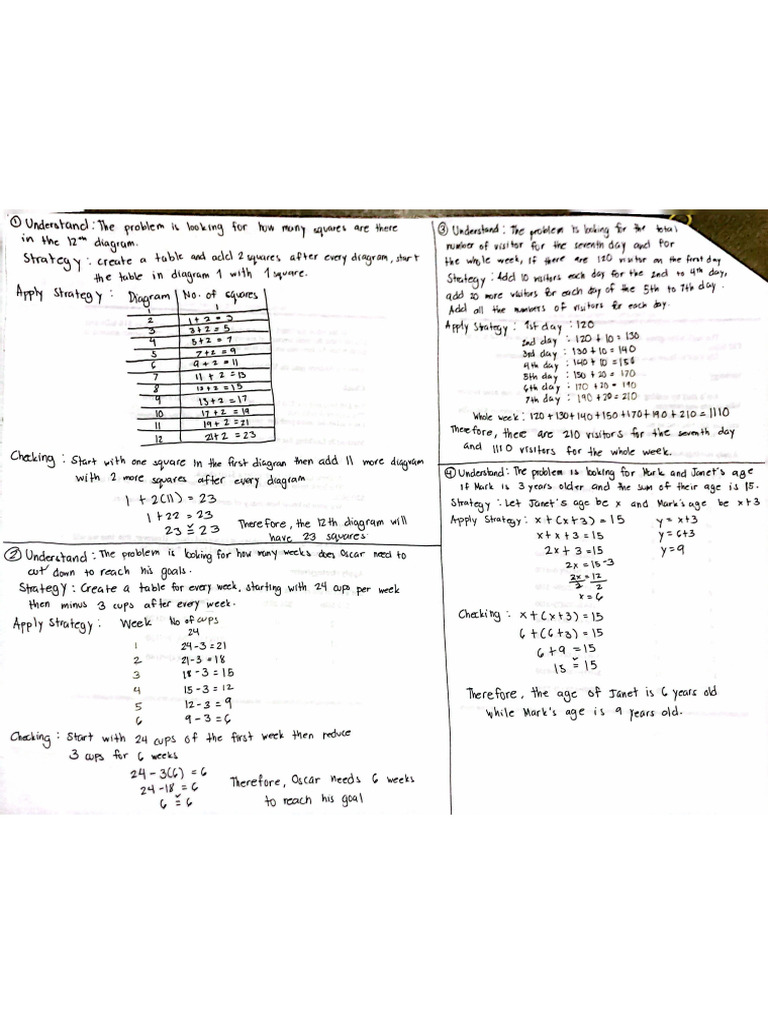 ① Understand: The problem is looking for how many squares are there
in the 12th diagram.
Strategy: create a table and add 2 squares after every diagram, start
the table in diagram 1 with 1 square.
Apply Strategy: Diagram | No. of squares
1 | 1
2 | 1+2=3
3 | 3+2=5
4 | 5+2=7
5 | 7+2=9
6 | 9+2=11
7 | 11+2=13
8 | 13+2=15
9 | 15+2=17
10 | 17+2=19
11 | 19+2=21
12 | 21+2=23
Checking: Start with one square in the first diagram then add 11 more diagram
with 2 more squares after every diagram
1+2(11)=23
1+22=23
23≚23
Therefore, the 12th diagram will
have 23 squares.
② Understand: The problem is looking for how many weeks does Oscar need to
cut down to reach his goals.
Strategy: Create a table for every week, starting with 24 cups per week
then minus 3 cups after every week.
Apply Strategy: Week No of cups
24
1 24-3=21
2 21-3=18
3 18-3=15
4 15-3=12
5 12-3=9
6 9-3=6
Checking: Start with 24 cups of the first week then reduce
3 cups for 6 weeks
24-3(6)=6
24-18=6
6≚6
Therefore, Oscar needs 6 weeks
to reach his goal
③ Understand: The problem is looking for the total
number of visitor for the seventh day and for
the whole week, if there are 120 visitor on the first day
Strategy: Add 10 visitors each day for the 2nd to 4th day,
add 20 more visitors for each day of the 5th to 7th day.
Add all the numbers of visitors for each day.
Apply Strategy: 1st day: 120
2nd day: 120+10=130
3rd day: 130+10=140
4th day: 140+10=150
5th day: 150+20=170
6th day: 170+20=190
7th day: 190+20=210
Whole week: 120+130+140+150+170+190+210=1110
Therefore, there are 210 visitors for the seventh day
and 1110 visitors for the whole week.
④ Understand: The problem is looking for Mark and Janet's age
if Mark is 3 years older and the sum of their age is 15.
Strategy: Let Janet's age be x and Mark's age be x+3
Apply Strategy: x+(x+3)=15 y=x+3
x+x+3=15 y=6+3
2x+3=15 y=9
2x=15-3
2x=12
2 2
x=6
Checking: x+(x+3)=15
6+(6+3)=15
6+9=15
15≚15
Therefore, the age of Janet is 6 years old
while Mark's age is 9 years old.